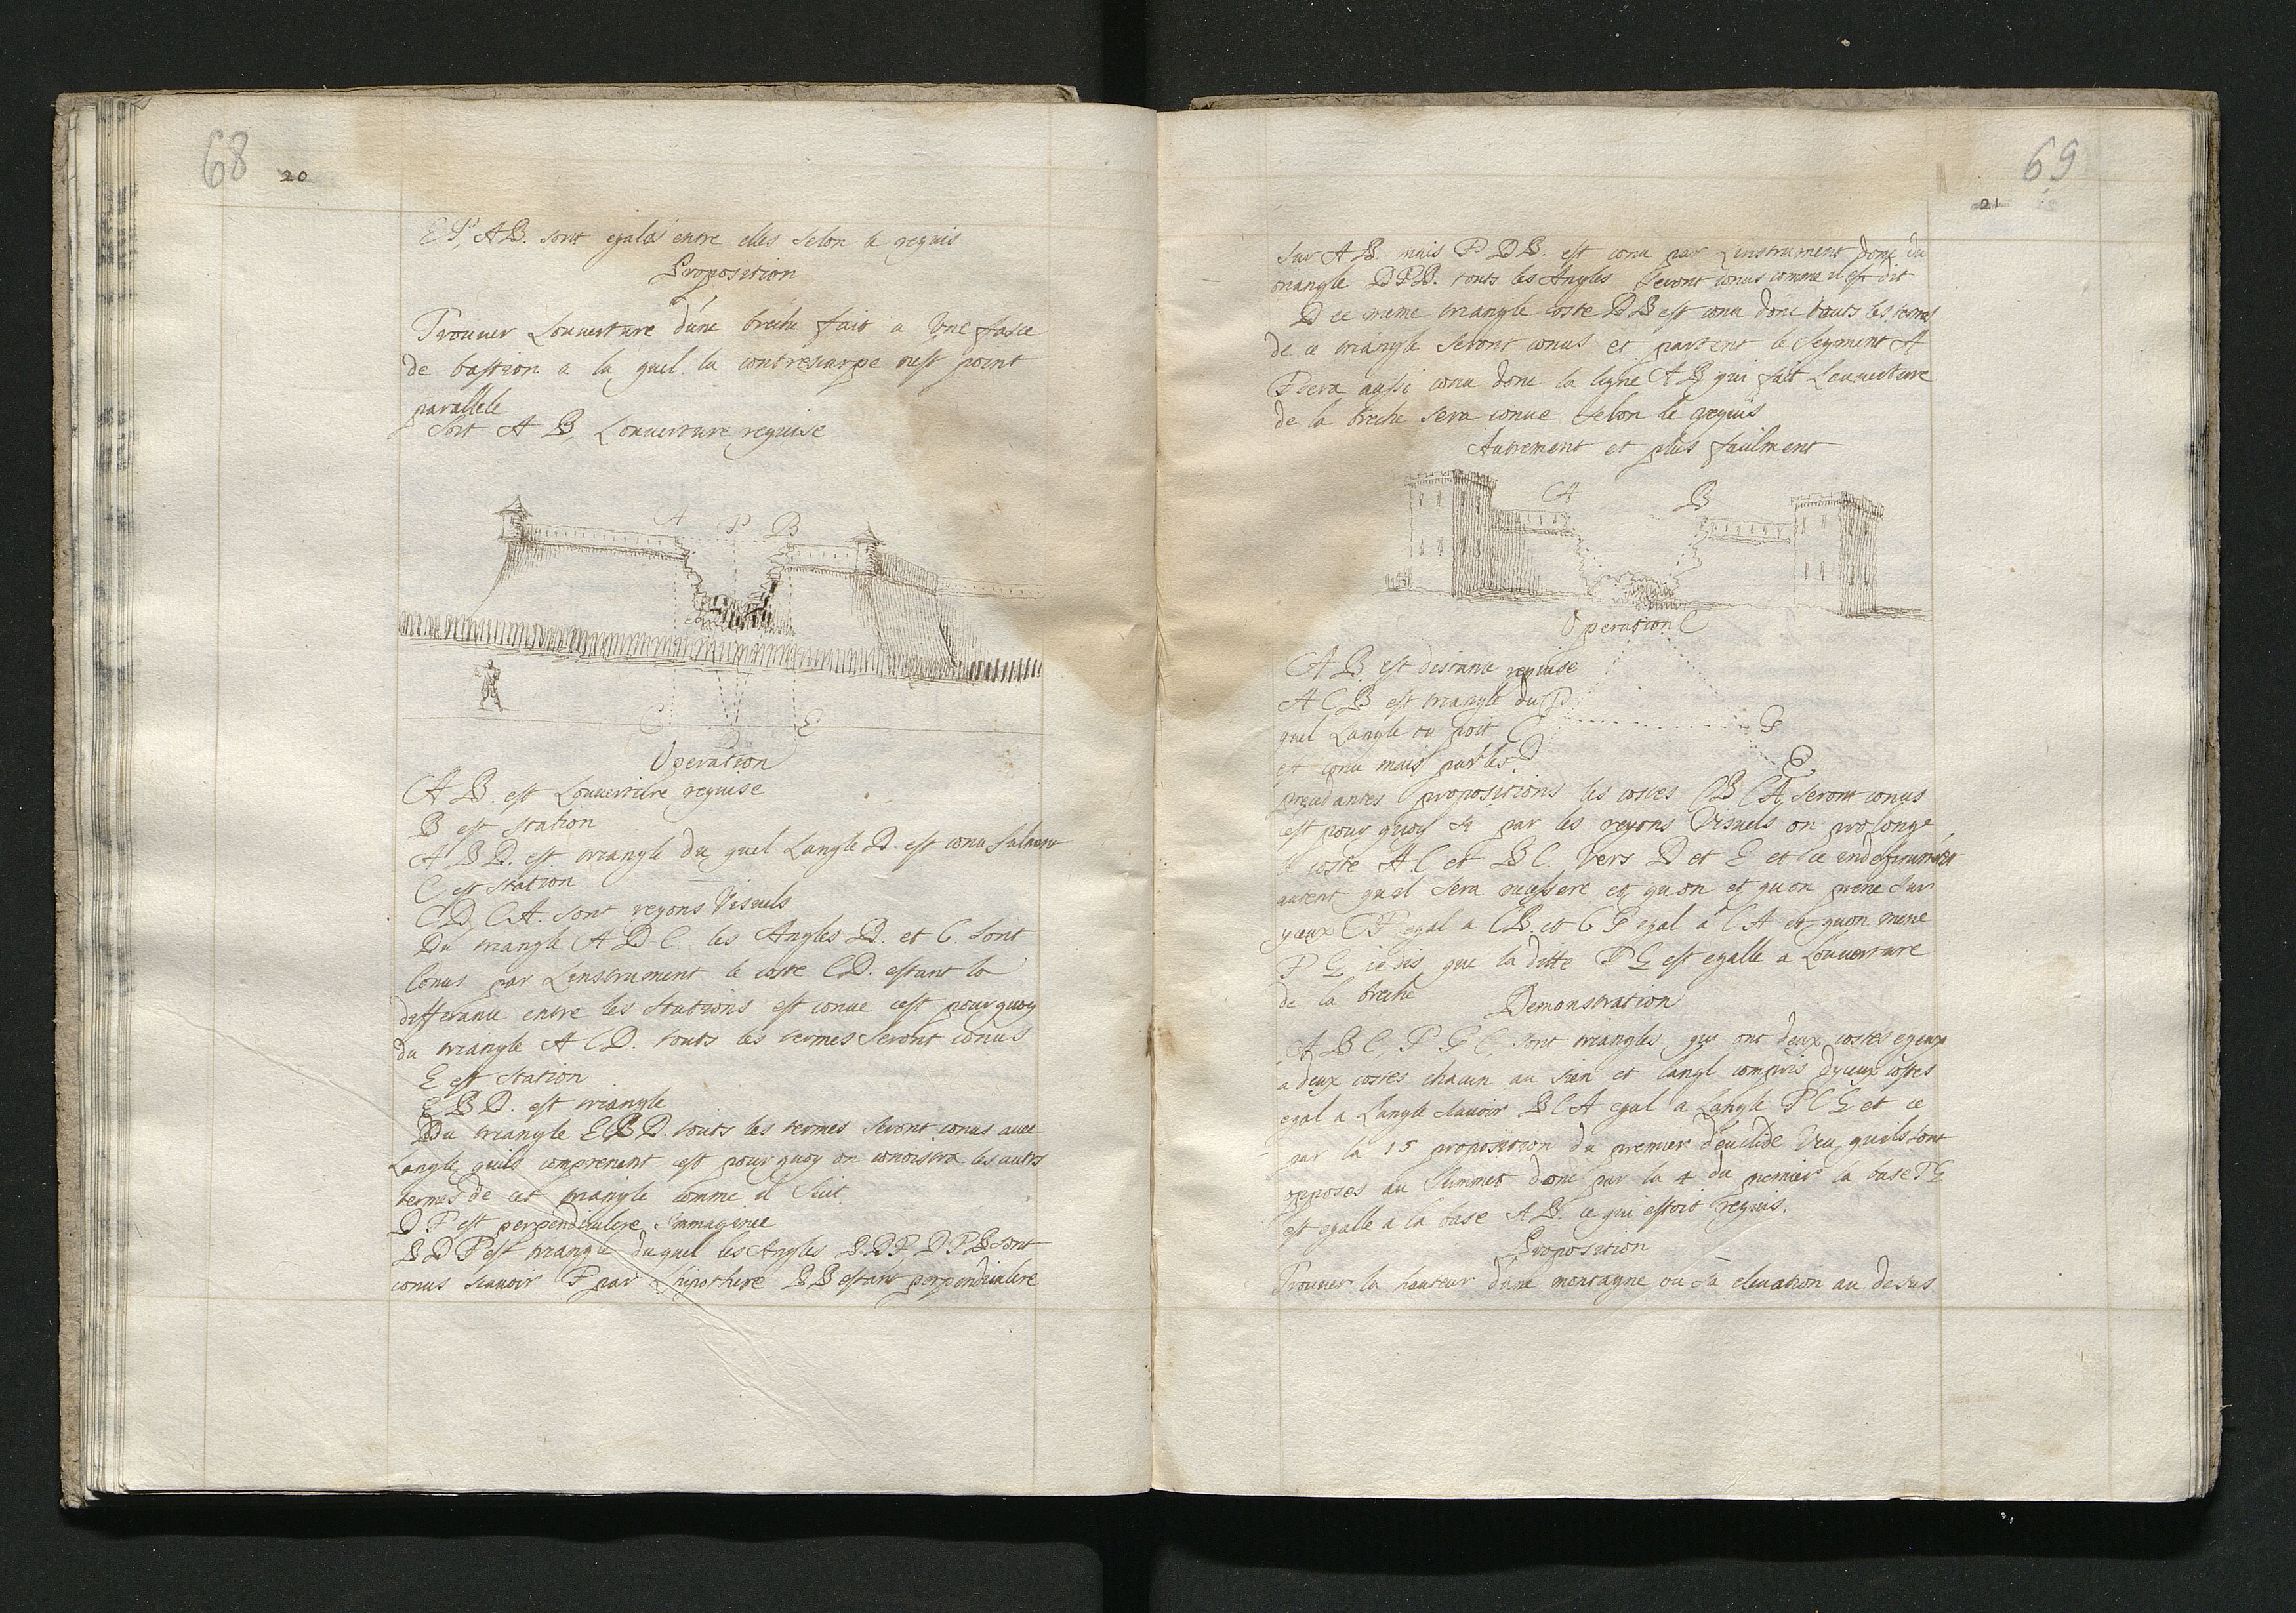 68
20
EF, AB. sont egales entre elles selon le requis
Proposition
Trouuer Louuerture d'une breche fait a Une fasce
de bastion a la quel la contrescarpe n'est point
parallele
Soit A B, Louuerture requise
A P B
C D E
Operation
A B. est Louuerture requise
B est station
A B D. est triangle du quel Langle D. est conu
C est station
CD, CA. sont reyons Visuels
Du triangle A D C. les Angles D. et C. sont
Conus par Linstrument le coste CD. estant la
differance entre les stations est conue cest pourquoy
du triangle A C D. touts les termes seront conus
E est station
E B D. est triangle
Du triangle EBD. touts les termes seront conus auec
Langle quils comprenent cest pour quoy on conoistra les autrs
termes de cet triangle comme il suit
D F est perpendiculere Immaginee
B D F est triangle duquel les Angles B.D.F. D F B sont
conus scauoir F par Lhipothese estant perpendiculere
69
21
sur A B. mais F D B. est conu par Linstrument donc du
triangle DFB. touts les Angles seront conus comme il est dit
D ce meme triangle coste DB est conu donc touts les termes
de ce triangle seront conus et partent le segment A
F sera aussi conu donc la ligne AB qui fait Louuerture
de la breche sera conue selon le requis
Autrement et plus facilment
A B
Operation C
A B. est distance requise
A C B est triangle du F
quel Langle ou point C G
est conu mais par les D E
precedantes propositions les costes CB CA, seront conus
cest pour quoy si par les reyons Visuels on prolonge
le coste A C et B C. Vers D et E et ce
autent quil sera necessere et quon et quon prene sur
yceux CF egal a CB. et C G egal a CA et quon mene
F G, ie dis que la ditte FG est egalle a Louuerture
de la breche
Demonstration
A B C, F G C, sont triangles qui ont deux costes egeux
a deux costes chacun au sien et langl compris dyceux costes
egal a Langle scauoir BCA egal a Langle F C G et ce
par la 15 proposition du premier d'euclide Veu quils sont
opposes au summet donc par la 4 du premier la base FG
est egalle a la base A B. ce qui estoit requis.
Proposition
Trouuer la hauteur d'une montagne ou sa eleuation au desus